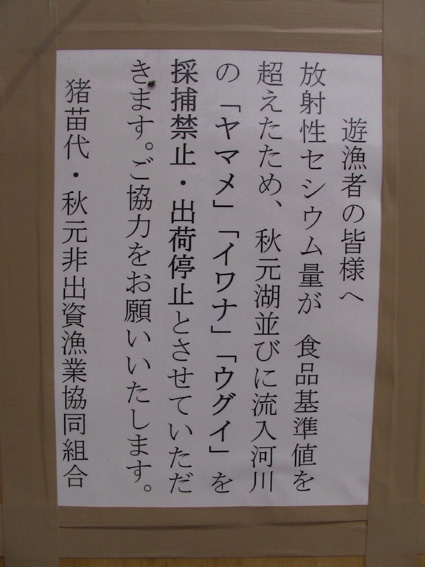 遊漁者の皆様へ
放射性セシウム量が　食品基準値を
超えたため、秋元湖並びに流入河川
の「ヤマメ」「イワナ」「ウグイ」を
採捕禁止・出荷停止とさせていただ
きます。ご協力をお願いいたします。
猪苗代・秋元非出資漁業協同組合